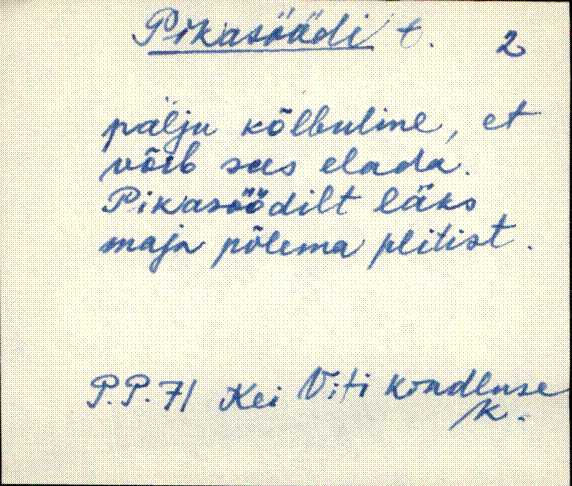 Pikasöödi t. 2
palju kõlbuline, et
võib sees elada.
Pikasöödilt läks
maja põlema plitist.
P.P. 71 Kei Viti Koadluse
K.